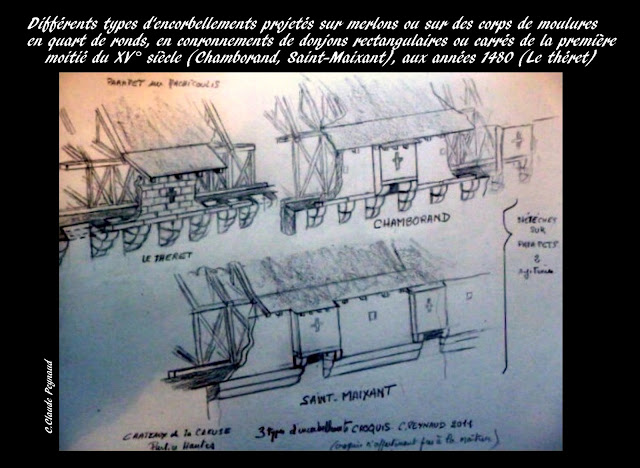 Différents types d'encorbellements projetés sur merlons ou sur des corps de moulures
en quart de ronds, en conronnements de donjons rectangulaires ou carrés de la première
moitié du XV° siècle (Chamborand, Saint-Maixant), aux années 1480 (Le théret)
PARAPET sur MACHICOULIS
LE THERET
CHAMBORAND
SUR
PARAPETS
SAINT-MAIXANT
C.Claude Peynaud
CHATEAUX de la CREUSE
Parties Hautes
3 types d'encorbellements CROQUIS - C. PEYNAUD 2011
(croquis n'appartenant pas à la notice)